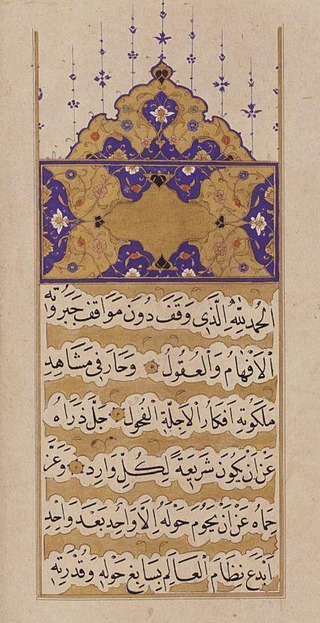 الحمد لله الذى وقف دون مواقف جبروته
الافهام والعقول وحار فى مشاهد
ملكوته افكار الاجلة الفحول جل ذراه
عز ان يكون شريعة لكل وارد وعز
حماه عز ان يحوم حوله الا واحد بعد واحد
ابدع نظام العالم بسابغ حوله وقدرته